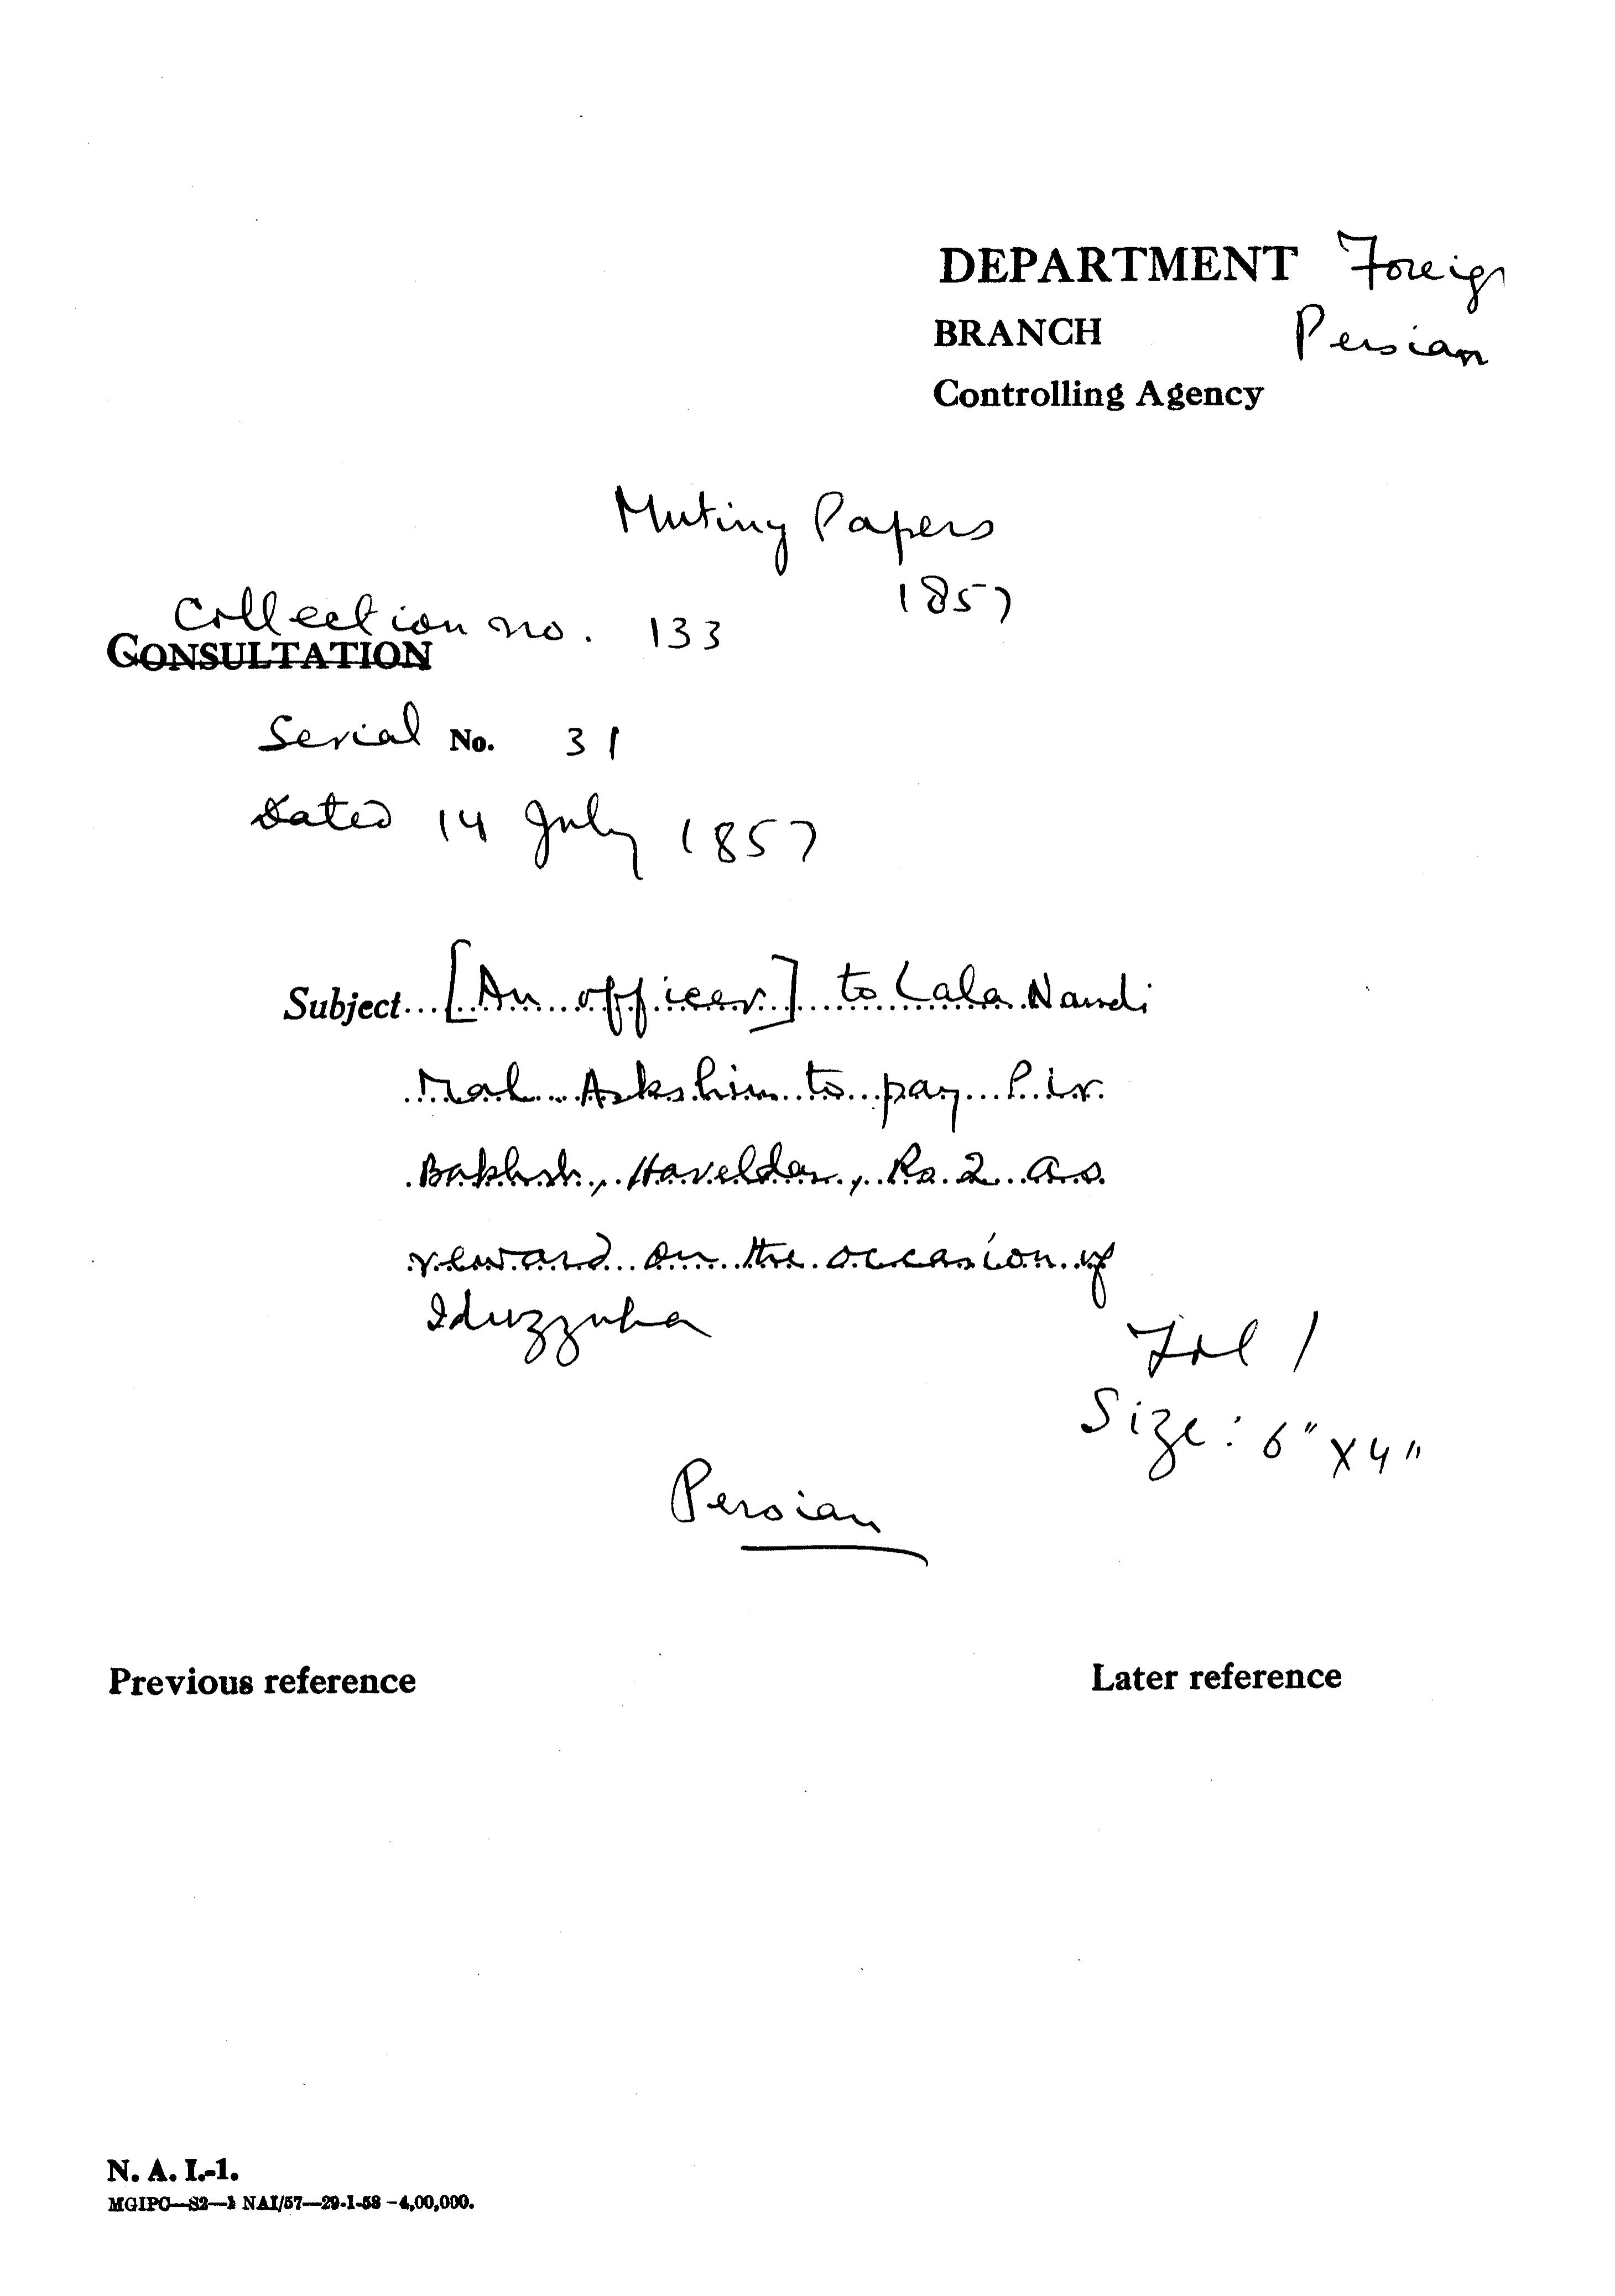 DEPARTMENT Foreign
BRANCH Persian
Controlling Agency
Mutiny Papers
1857
Collection no. 133
CONSULTATION
Serial No. 31
Dated 14 July 1857
Subject...[An officer] to Lala Nandi
Mal Asks him to pay Pir
Bakhsh, Havelder, Rs. 2 as
reward on the occasion of
Iduzzuha
Fol 1
Size: 6" x 4"
Persian
Previous reference
Later reference
N. A. I.-1.
MGIPC—S2—1 NAI/57—29-1-58—4,00,000.